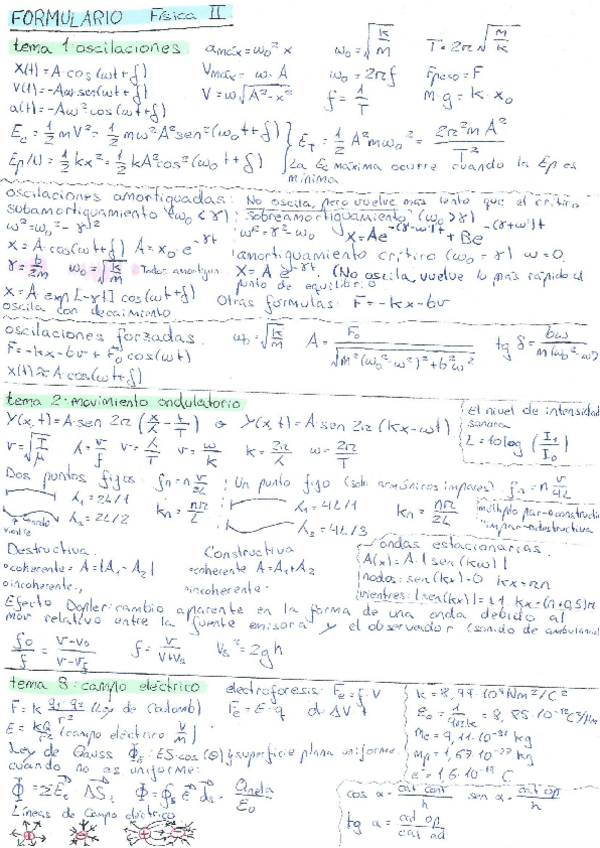 FORMULARIO Física II
tema 1: oscilaciones
a máx = ω₀² x
ω₀ = √(k/m)
T = 2π √(m/k)
X(t) = A · cos(ωt + δ)
V máx = ω · A
ω₀ = 2πf
Fpeso = F
V(t) = -Aω sen(ωt + δ)
V = ω √(A² - x²)
f = 1/T
m · g = k · x₀
a(t) = -Aω² cos(ωt + δ)
Ec = 1/2 mV² = 1/2 mω² A² sen²(ω₀t + δ)
Ep(t) = 1/2 kx² = 1/2 kA² cos²(ω₀t + δ)
E_T = 1/2 A² mω₀² = 2π² m A² / T²
La Ec máxima ocurre cuando la Ep es
mínima
oscilaciones amortiguadas: No oscila, pero vuelve más lento que el crítico
subamortiguamiento (ω₀ < γ)
Sobreamortiguamiento (ω₀ > γ)
ω² = ω₀² - γ²
ω² = γ² - ω₀
X = Ae^-(γ-ω')t + Be^-(γ+ω')t
x = A · cos(ωt + δ) A = x₀ · e^-γt
amortiguamiento crítico (ω₀ = γ) ω = 0
γ = b/2m ω₀ = √(k/m) Todos amortigu.
X = A e^-γt. (No oscila, vuelve lo más rápido al
punto de equilibrio
X = A exp[-γt] cos(ωt + δ)
oscila con decaimiento
Otras formulas: F = -kx - bv
oscilaciones forzadas.
ω₀ = √(k/m)
A = F₀ / √(m²(ω₀² - ω²)² + b²ω²)
tg δ = bω / m(ω₀² - ω²)
F = -kx - bv + F₀ cos(ωt)
x(t) = A cos(ωt + δ)
tema 2: movimiento ondulatorio
Y(x,t) = A · sen 2π (x/λ - t/T) o Y(x,t) = A · sen 2π (kx - ωt)
el nivel de intensidad
sonora
L = 10 log (I₁/I₀)
v = √(T/μ) λ = v/f v = λ/T v = ω/k k = 2π/λ ω = 2π/T
Dos puntos fijos: fn = n v/2L
Un punto fijo (solo armónicos impares) fn = n v/4L
λ₁ = 2L/1
kn = nπ/L
λ₁ = 4L/1
kn = nπ/2L
λ₂ = 2L/2
λ₂ = 4L/3
múltiplo par → constructiva
impar → destructiva
Destructiva
Constructiva
ondas estacionarias.
coherente A = |A₁ - A₂|
coherente A = A₁ + A₂
A(x) = A · |sen(kω)|
incoherente:
incoherente:
nodos: sen(kx) = 0 kx = πn
vientres: |sen(kx)| = ±1 kx = (n + 0,5)π
Efecto Doppler: cambio aparente en la forma de una onda debido al
mov relativo entre la fuente emisora y el observador (sonido de ambulancia)
f₀/f = v - v₀ / v - v_f
f = v / V + V
V_s² = 2gh
tema 3: campo eléctrico
electroforesis: Fe = f · V
k = 8,99 · 10⁹ Nm²/C²
F = k q₁ · q₂ / r² (Ley de Coulomb)
Fe = E · q d = ΔV t
ε₀ = 1/4πk = 8,85 · 10⁻¹² C²/Nm²
E = kQ/r² (campo eléctrico V/m)
me = 9,11 · 10⁻³¹ kg
mp = 1,67 · 10⁻²⁷ kg
Ley de Gauss Φ: ES · cos(θ) } superficie plana uniforme
e⁻ = 1,6 · 10⁻¹⁹ C
cuando no es uniforme:
Φ = Σ E · ΔS Φ = ∮ E ds = Qneta / ε₀
cos α = cat cont / h sen α = cat op / h
Líneas de campo eléctrico
tg α = cat op / cat ad